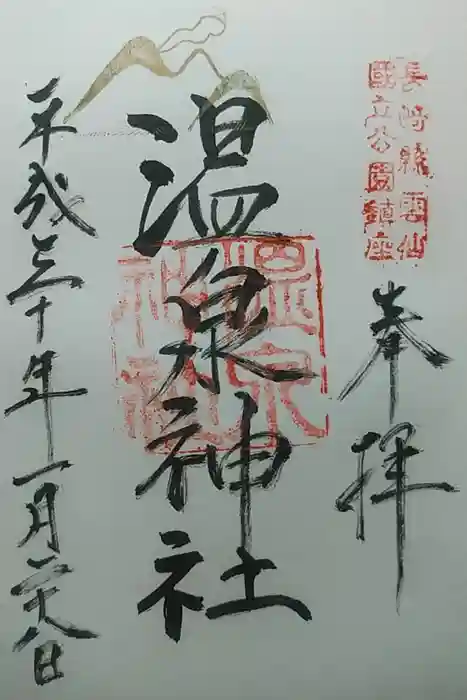 長崎縣雲仙
國立公園鎮座
奉拝
温泉神社
温泉
神社
平成三十年一月二十八日